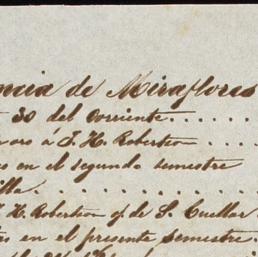 ncia de Miraflores
30 del corriente . . . .
oro á J. H. Robertson . . .
es en el segundo semestre
illa. . . . . . . . . . .
J. H. Robertson of. de S. Cuellar
es en el presente semestre.